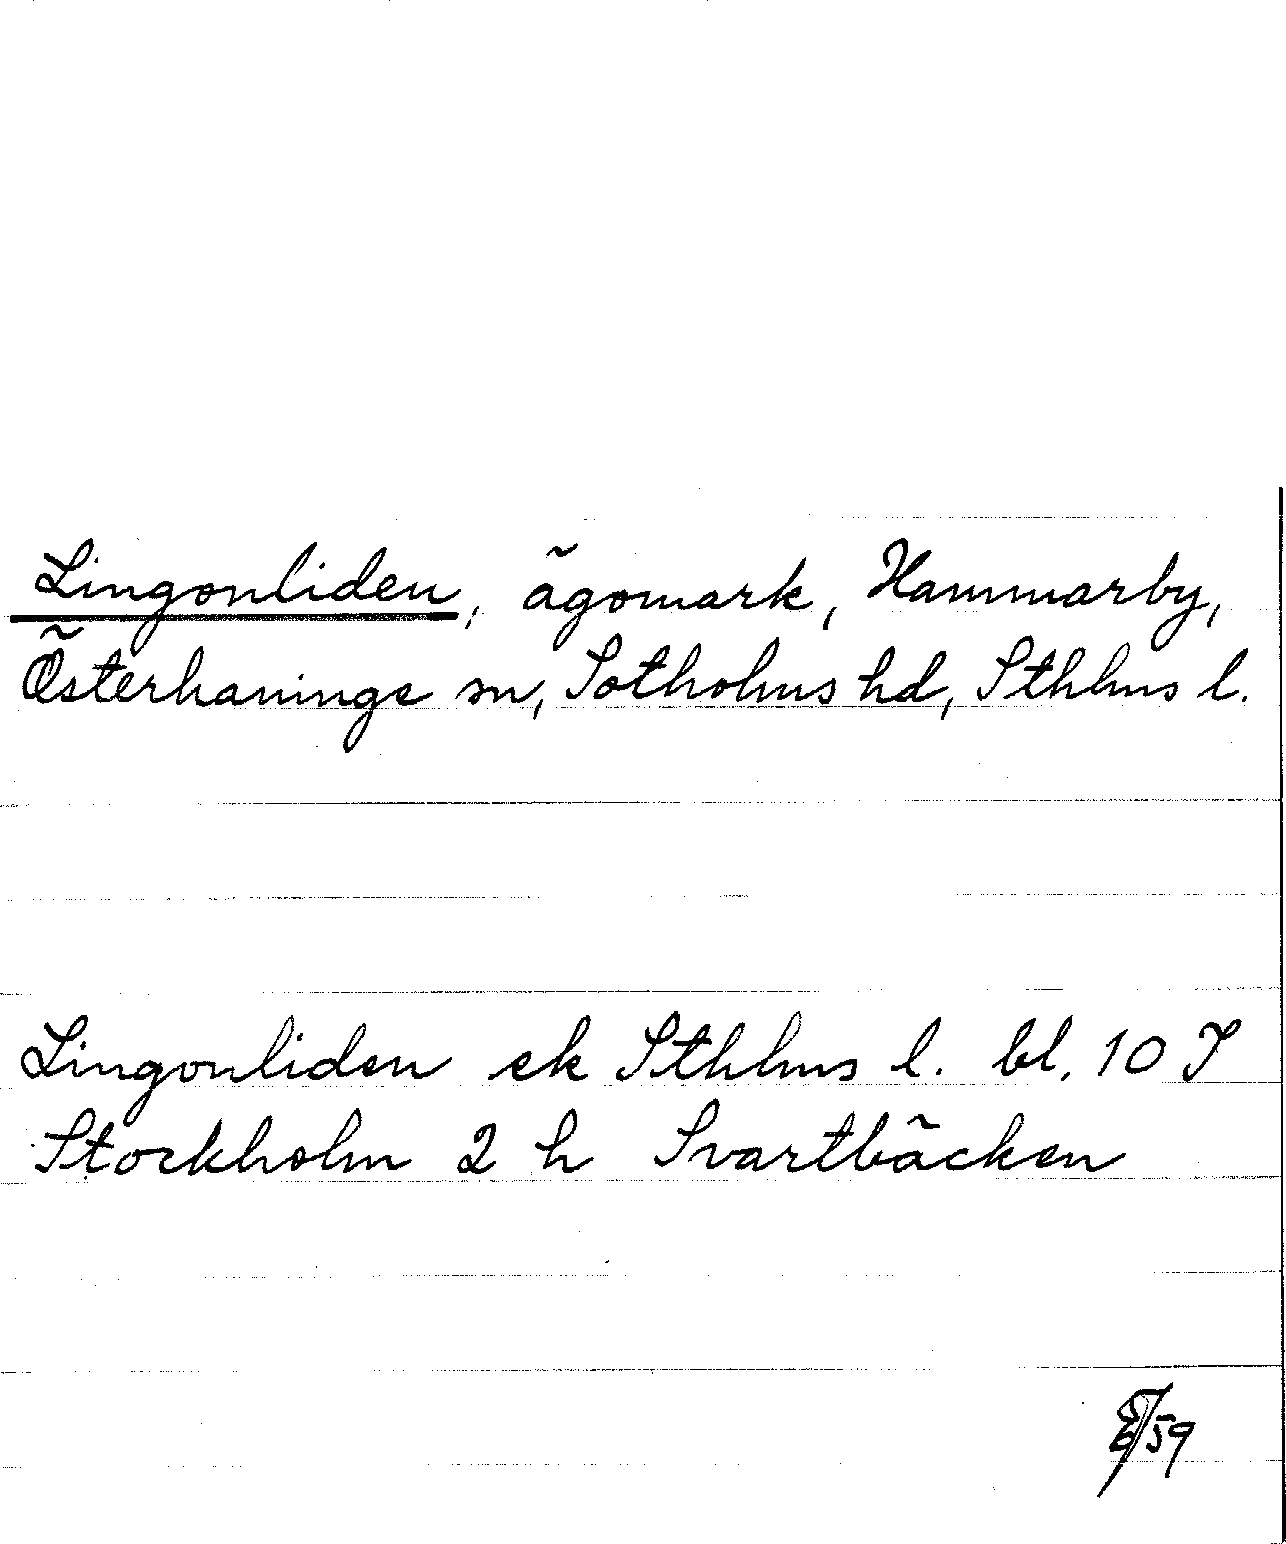 Lingonliden, ägomark, Hammarby,
Österhaninge sn, Sotholms hd, Sthlms l.
Lingonliden ek Sthlms l. bl. 10 I
Stockholm 2 h Svartbäcken
/59